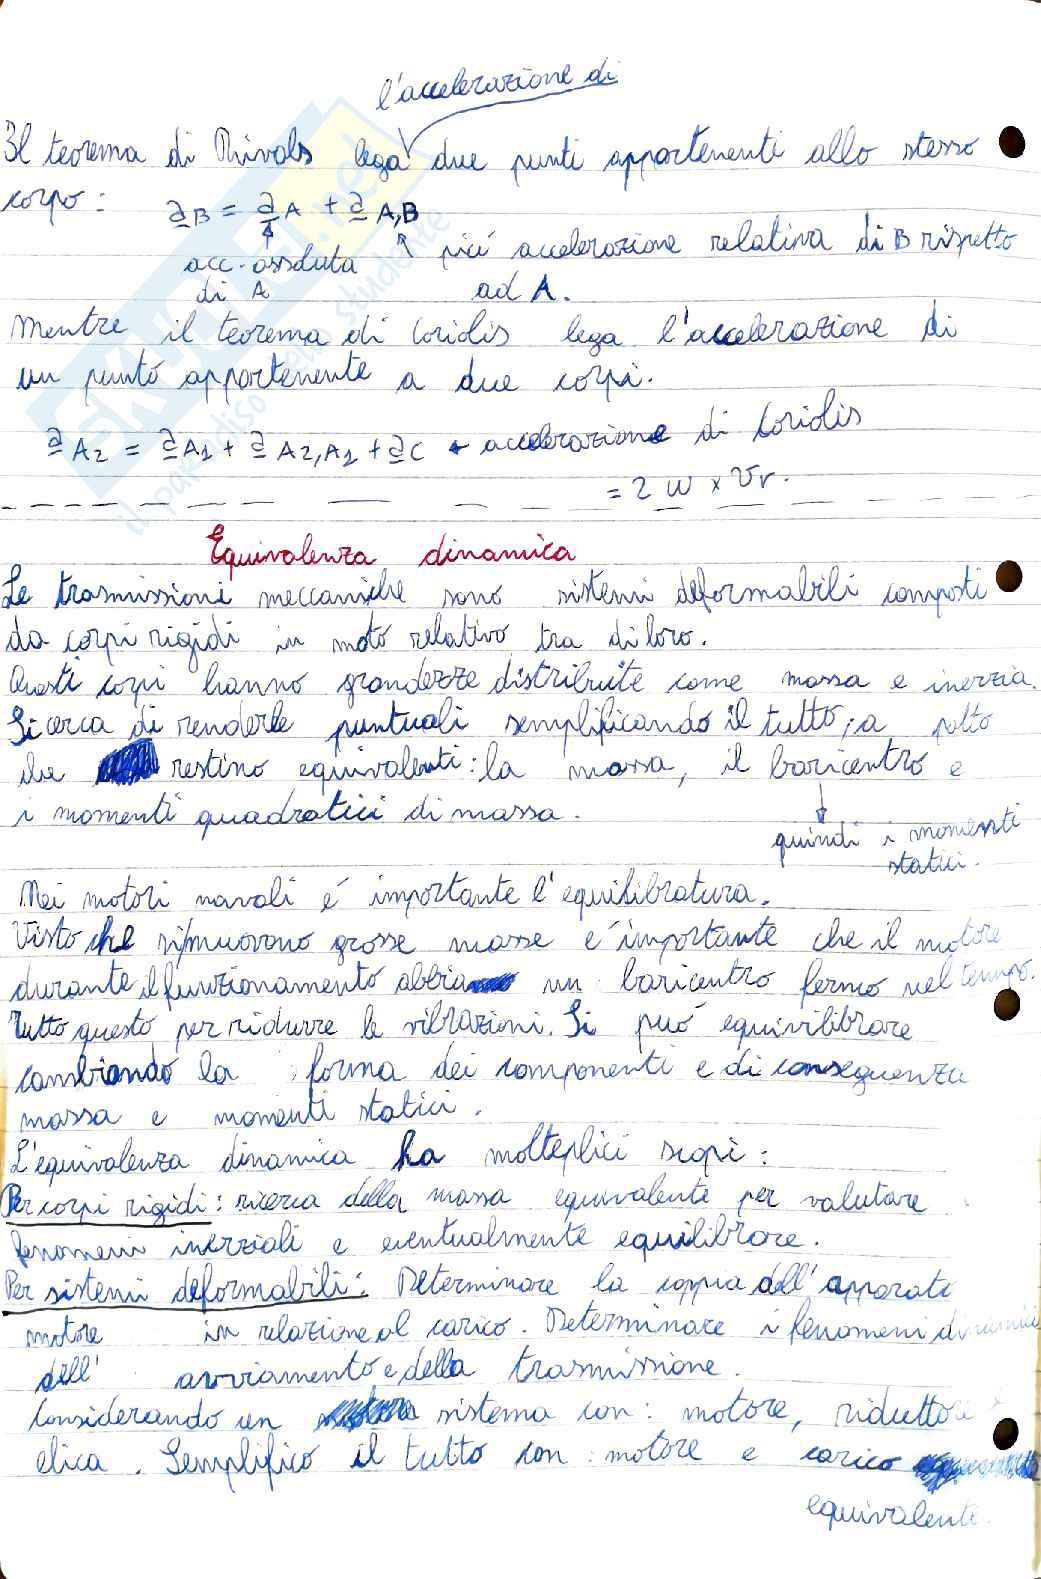 l'accelerazione di
Il teorema di Rivals lega due punti appartenenti allo stesso
corpo: a̲B = a̲A + a̲A,B
acc. assoluta
di A
più accelerazione relativa di B rispetto
ad A.
Mentre il teorema di Coriolis lega l'accelerazione di
un punto appartenente a due corpi.
a̲A2 = a̲A1 + a̲A2,A1 + a̲C ← accelerazione di Coriolis
= 2 w x vr.
Equivalenza dinamica
Le trasmissioni meccaniche sono sistemi deformabili composti
da corpi rigidi in moto relativo tra di loro.
Questi corpi hanno grandezze distribuite come massa e inerzia.
Si cerca di renderle puntuali semplificando il tutto; a patto
che restino equivalenti: la massa, il baricentro e
i momenti quadratici di massa.
quindi i momenti
statici.
Nei motori navali é importante l'equilibratura.
Visto che si muovono grosse masse é importante che il motore
durante il funzionamento abbia un baricentro fermo nel tempo.
Tutto questo per ridurre le vibrazioni. Si può equivilibrare
cambiando la forma dei componenti e di conseguenza
massa e momenti statici.
L'equivalenza dinamica ha molteplici scopi:
Per corpi rigidi: ricerca della massa equivalente per valutare
fenomeni inerziali e eventualmente equilibrare.
Per sistemi deformabili: Determinare la coppia dell'apparato
motore in relazione al carico. Determinare i fenomeni dinamici
dell' avviamento e della trasmissione.
Considerando un sistema con: motore, riduttore
elica. Semplifico il tutto con: motore e carico
equivalente.